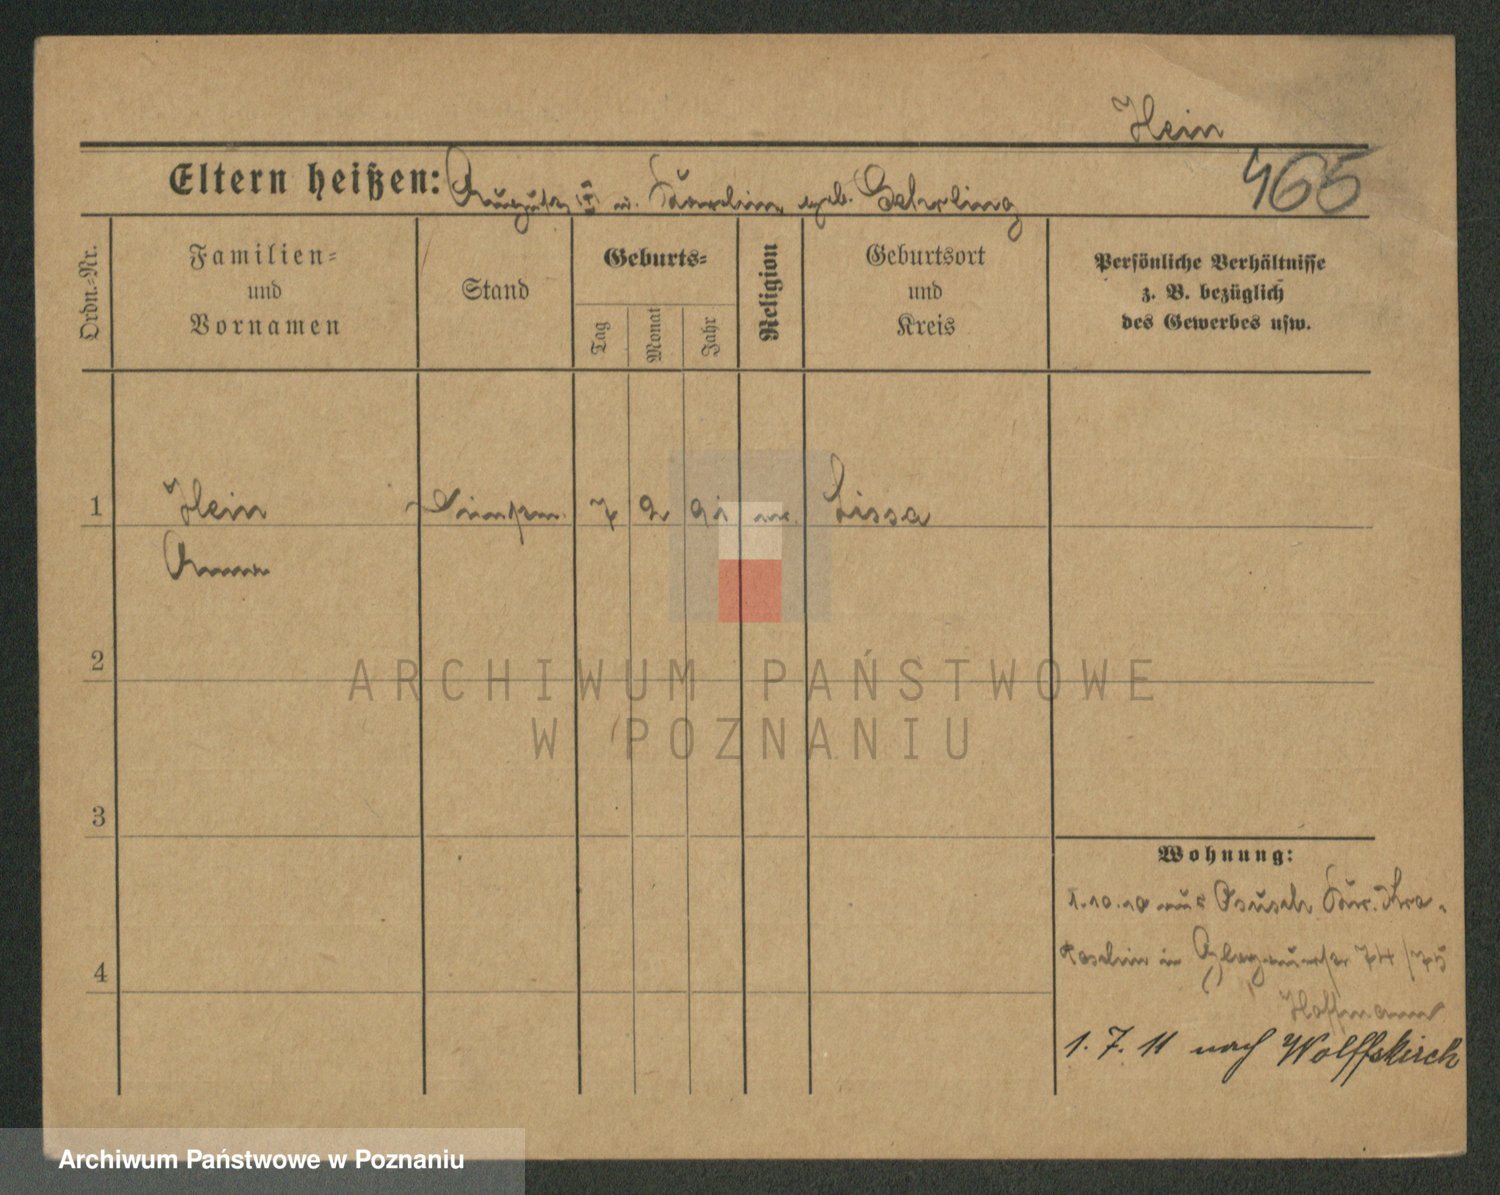 Hein
465
Eltern heißen: August u. Karoline geb. Gehrling
Ordn.-Nr.
Familien-
und
Vornamen
Stand
Geburts-
Tag
Monat
Jahr
Religion
Geburtsort
und
Kreis
Persönliche Verhältnisse
z. B. bezüglich
des Gewerbes usw.
1 Hein 7 2 91 Lissa
Anna
2
3
4
Wohnung:
1.10.10 aus
in 74/75
Hoffmann
1. 7. 11 nach Wolfskirch
ARCHIWUM PAŃSTWOWE
W POZNANIU
Archiwum Państwowe w Poznaniu